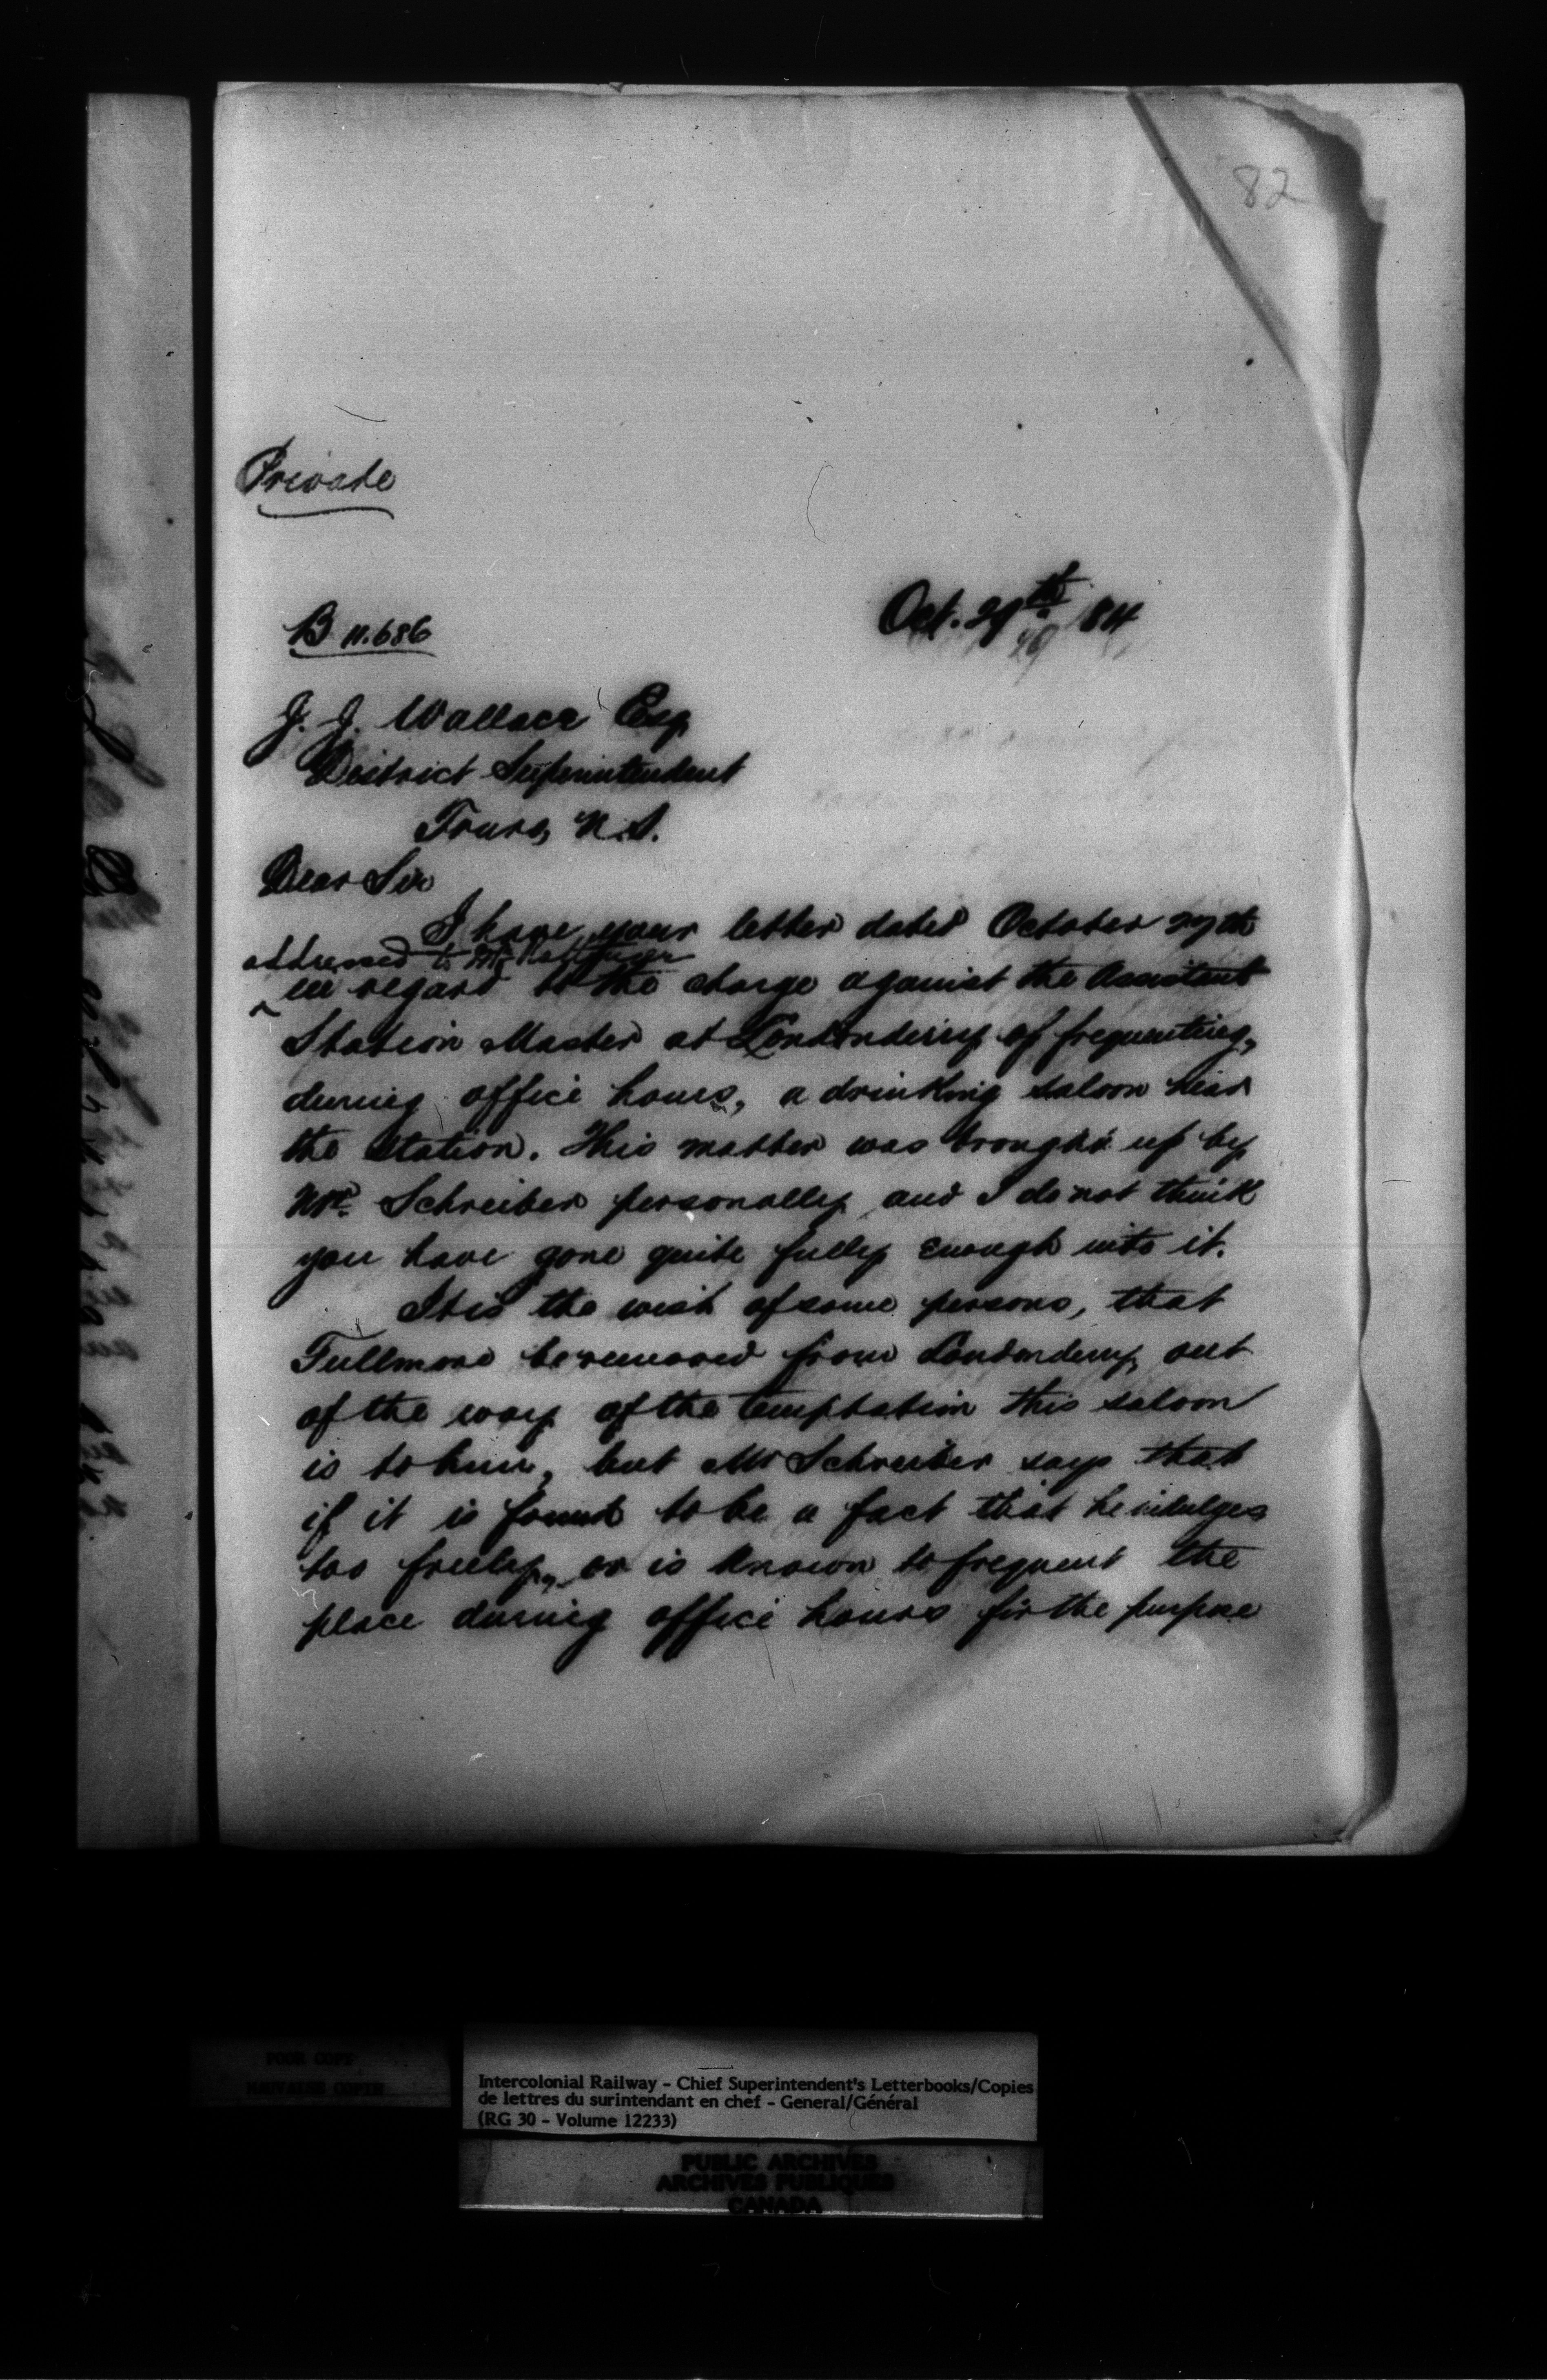 82
Private
Oct. 29th 1884
B 11.686
J. J. Wallace Esq
District Superintendent
Truro, N.S.
Dear Sir
I have your letter dated October 27th
addressed to Mr Pottinger
in regard to the charge against the Assistant
Station Master at Londonderry of frequenting,
during office hours, a drinking saloon near
the Station. This matter was brought up by
Mr. Schreiber personally and I do not think
you have gone quite fully enough into it.
It is the wish of some persons, that
Fullmore be removed from Londonderry, out
of the way of the temptation this saloon
is to him, but Mr Schreiber says that
if it is found to be a fact that he indulges
too freely, or is known to frequent the
place during office hours for the purpose
POOR COPY
MAUVAISE COPIE
Intercolonial Railway - Chief Superintendent's Letterbooks/Copies
de lettres du surintendant en chef - General/Général
(RG 30 - Volume 12233)
PUBLIC ARCHIVES
ARCHIVES PUBLIQUES
CANADA